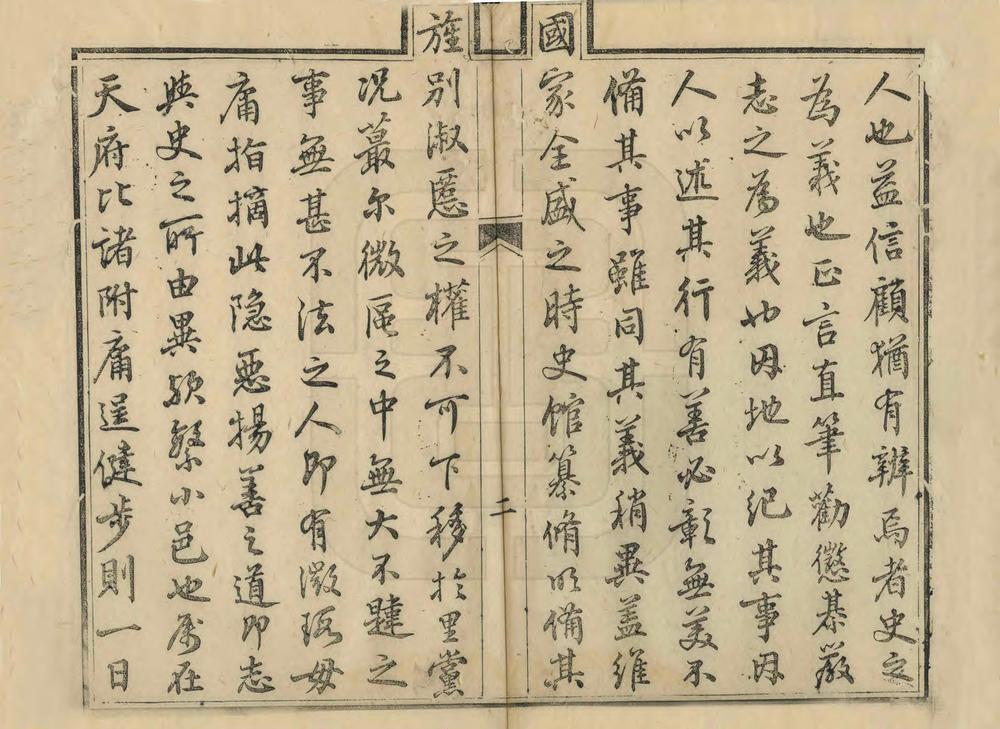 人也益信顧猶有辨焉者史之
為義也正言直筆勸懲綦嚴
志之為義也因地以紀其事因
人以述其行有善必彰無美不
備其事雖同其義稍異蓋維
國家全盛之時史館纂脩以備其
旌別淑慝之權不可下移於里黨
況蕞尔微區之中無大不韙之
事無甚不法之人即有微瑕毋
庸指摘此隐惡揚善之道即志
與史之所由異歟繁小邑也属在
天府比諸附庸逞健步則一日
二